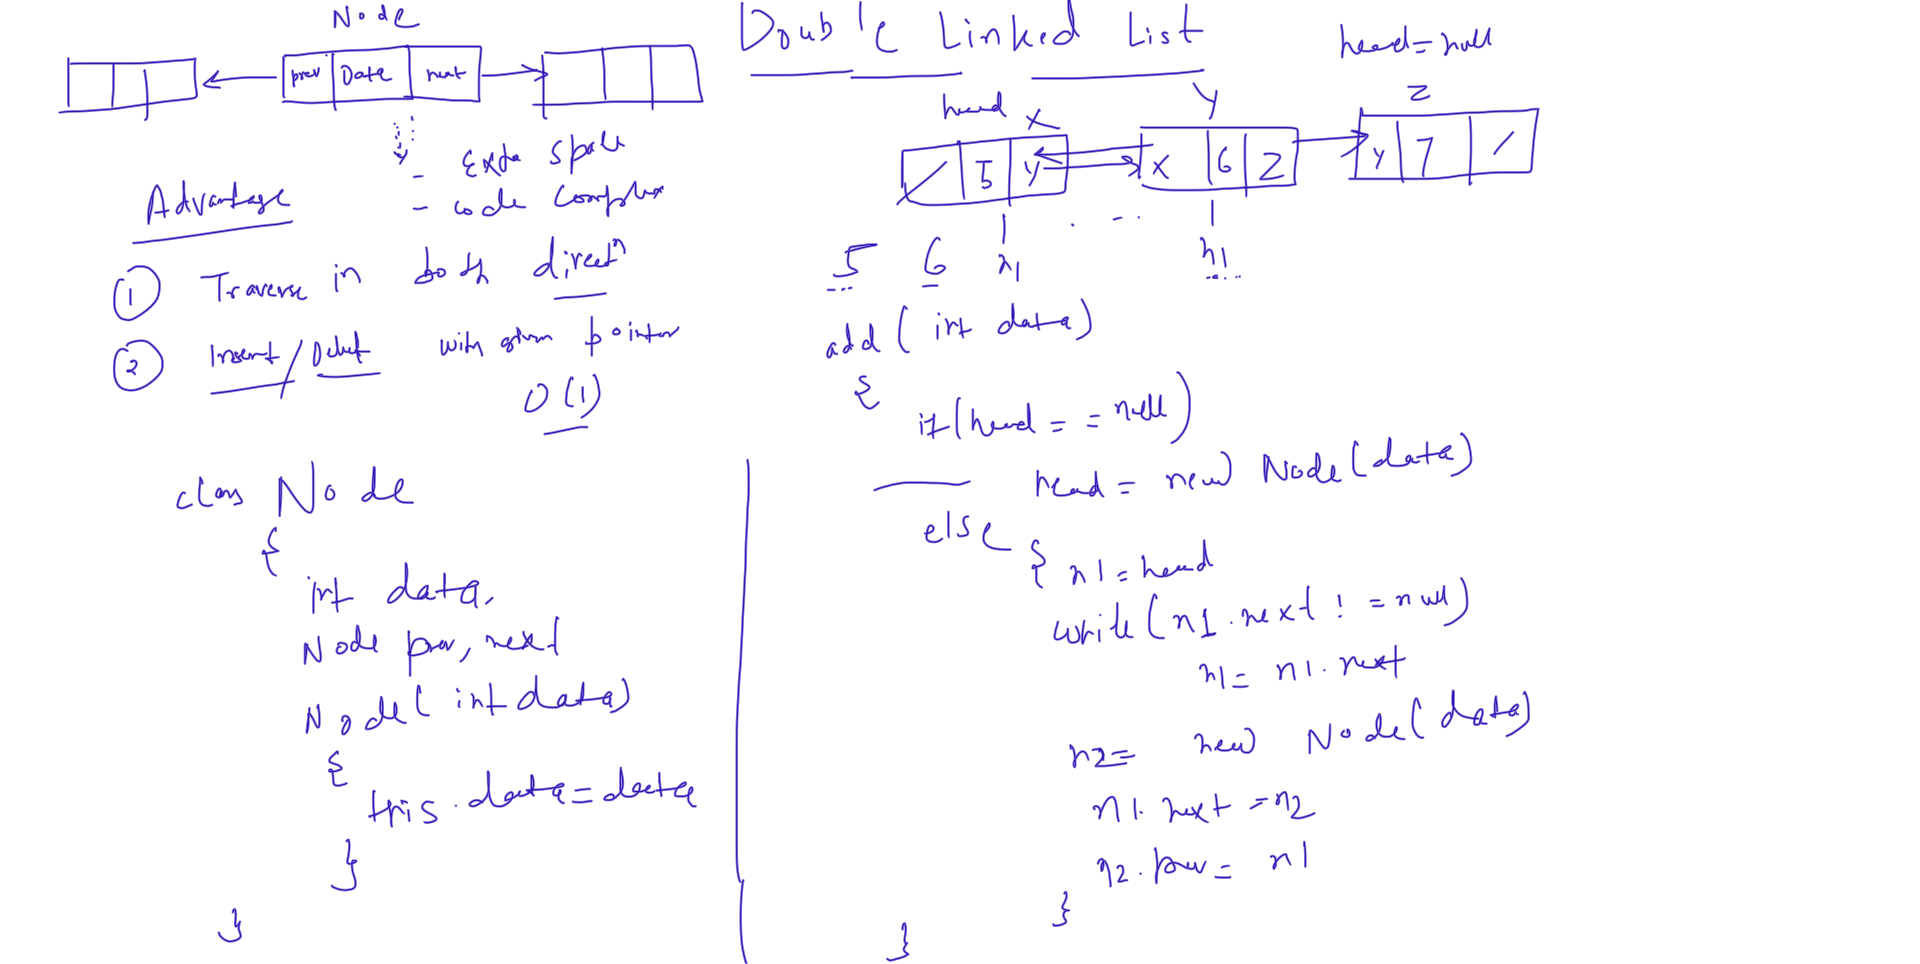 Double Linked List
Node
prev Data next
- Extra Space
- code Complex
Advantage
① Traverse in both directn
② Insert/Delet with given pointer
O(1)
class Node
{
int data,
Node prev, next
Node(int data)
{
this.data=data
}
}
head=null
head X Y Z
5 Y X 6 Z Y 7
5 6 n1 n1
add(int data)
{
if(head==null)
head = new Node(data)
else
{ n1=head
while(n1.next!=null)
n1= n1.next
n2= new Node(data)
n1.next=n2
n2.prev= n1
}
}